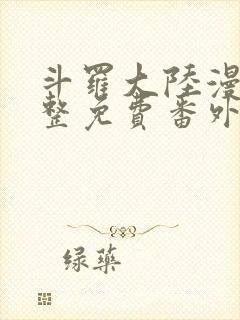 斗羅大陸漫
整免費番外
绿藥